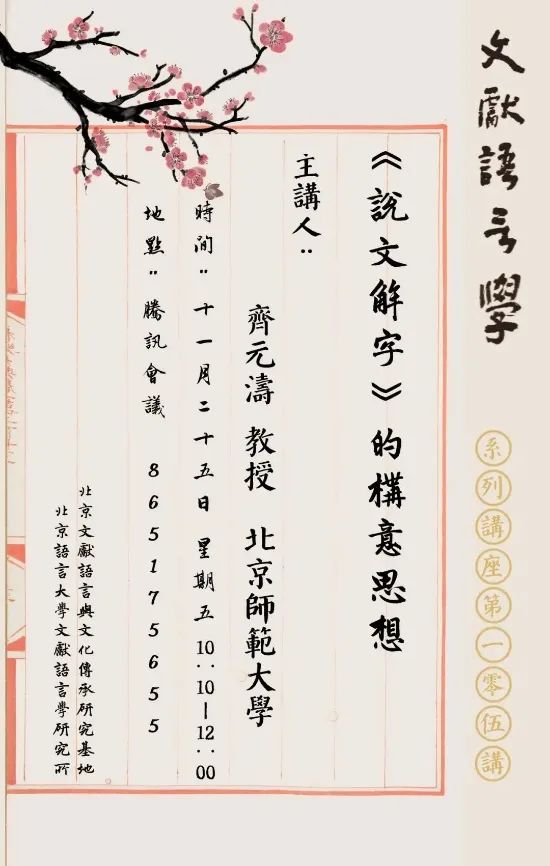 文獻語言學
系列講座第一零伍講
《說文解字》的構意思想
主講人：
齊元濤 教授 北京師範大學
時間：十一月二十五日 星期五 10：10—12：00
地點：騰訊會議 865175655
北京文獻語言與文化傳承研究基地
北京語言大學文獻語言學研究所